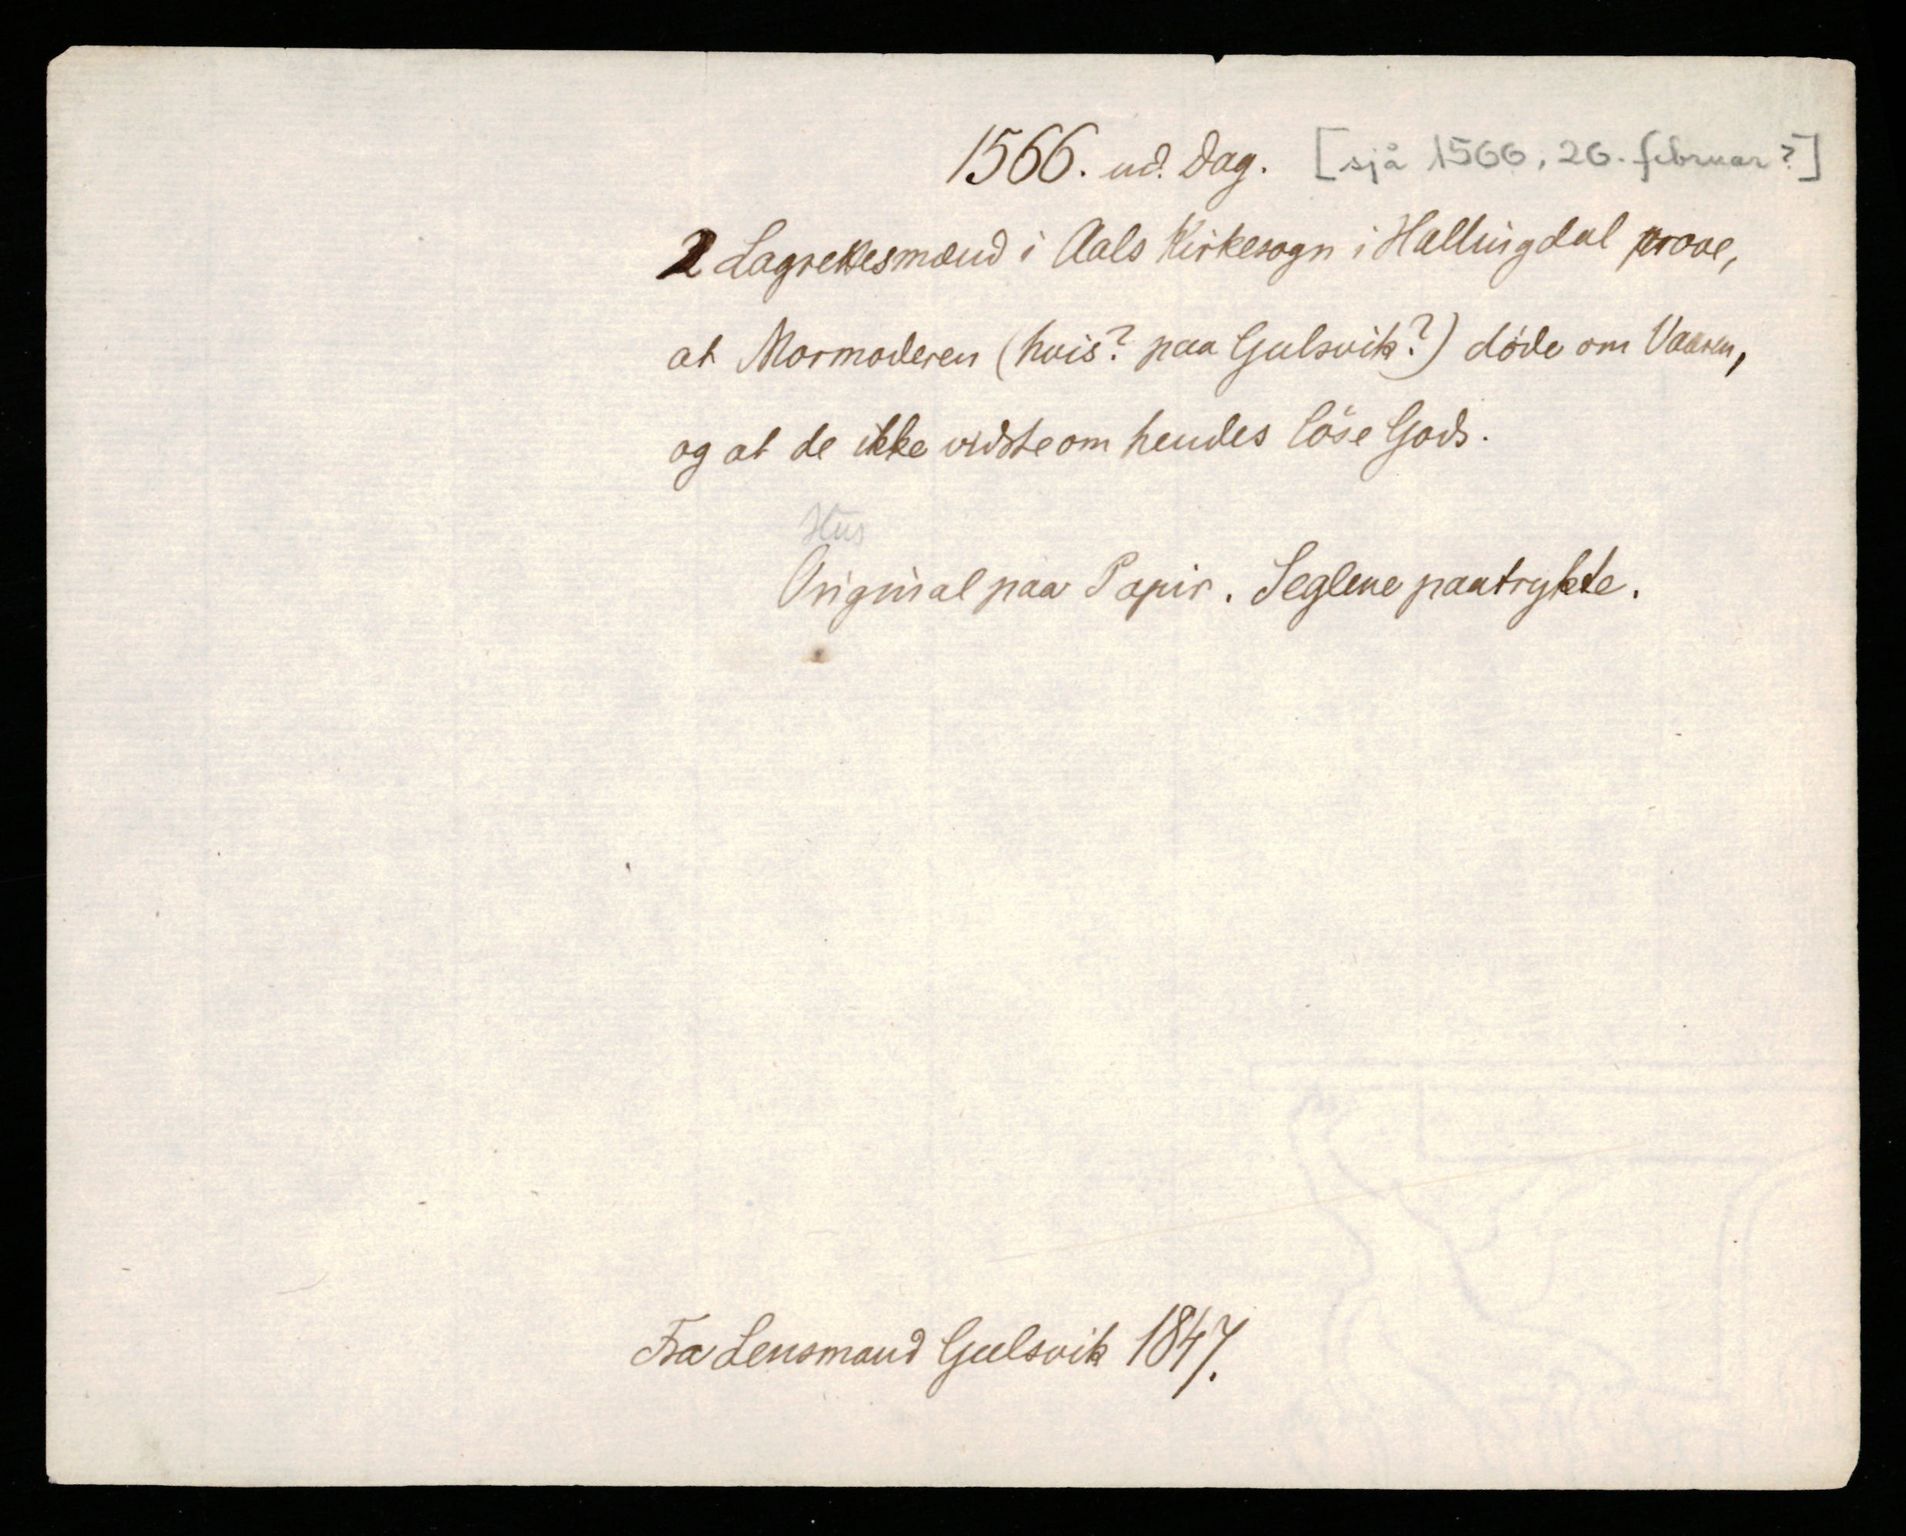 1566. ud. Dag. [sjå 1566, 26. februar?]
2 Lagrettesmænd i Aals Kirkesogn i Hallingdal prove,
at Mormoderen (hvis? paa Gulsvik?) døde om Vaaren,
og at de ikke vidste om hendes löse Gods.
Hus
Original paa Papir. Seglene paatrykte.
Fra Lensmand Gulsvik 1847.